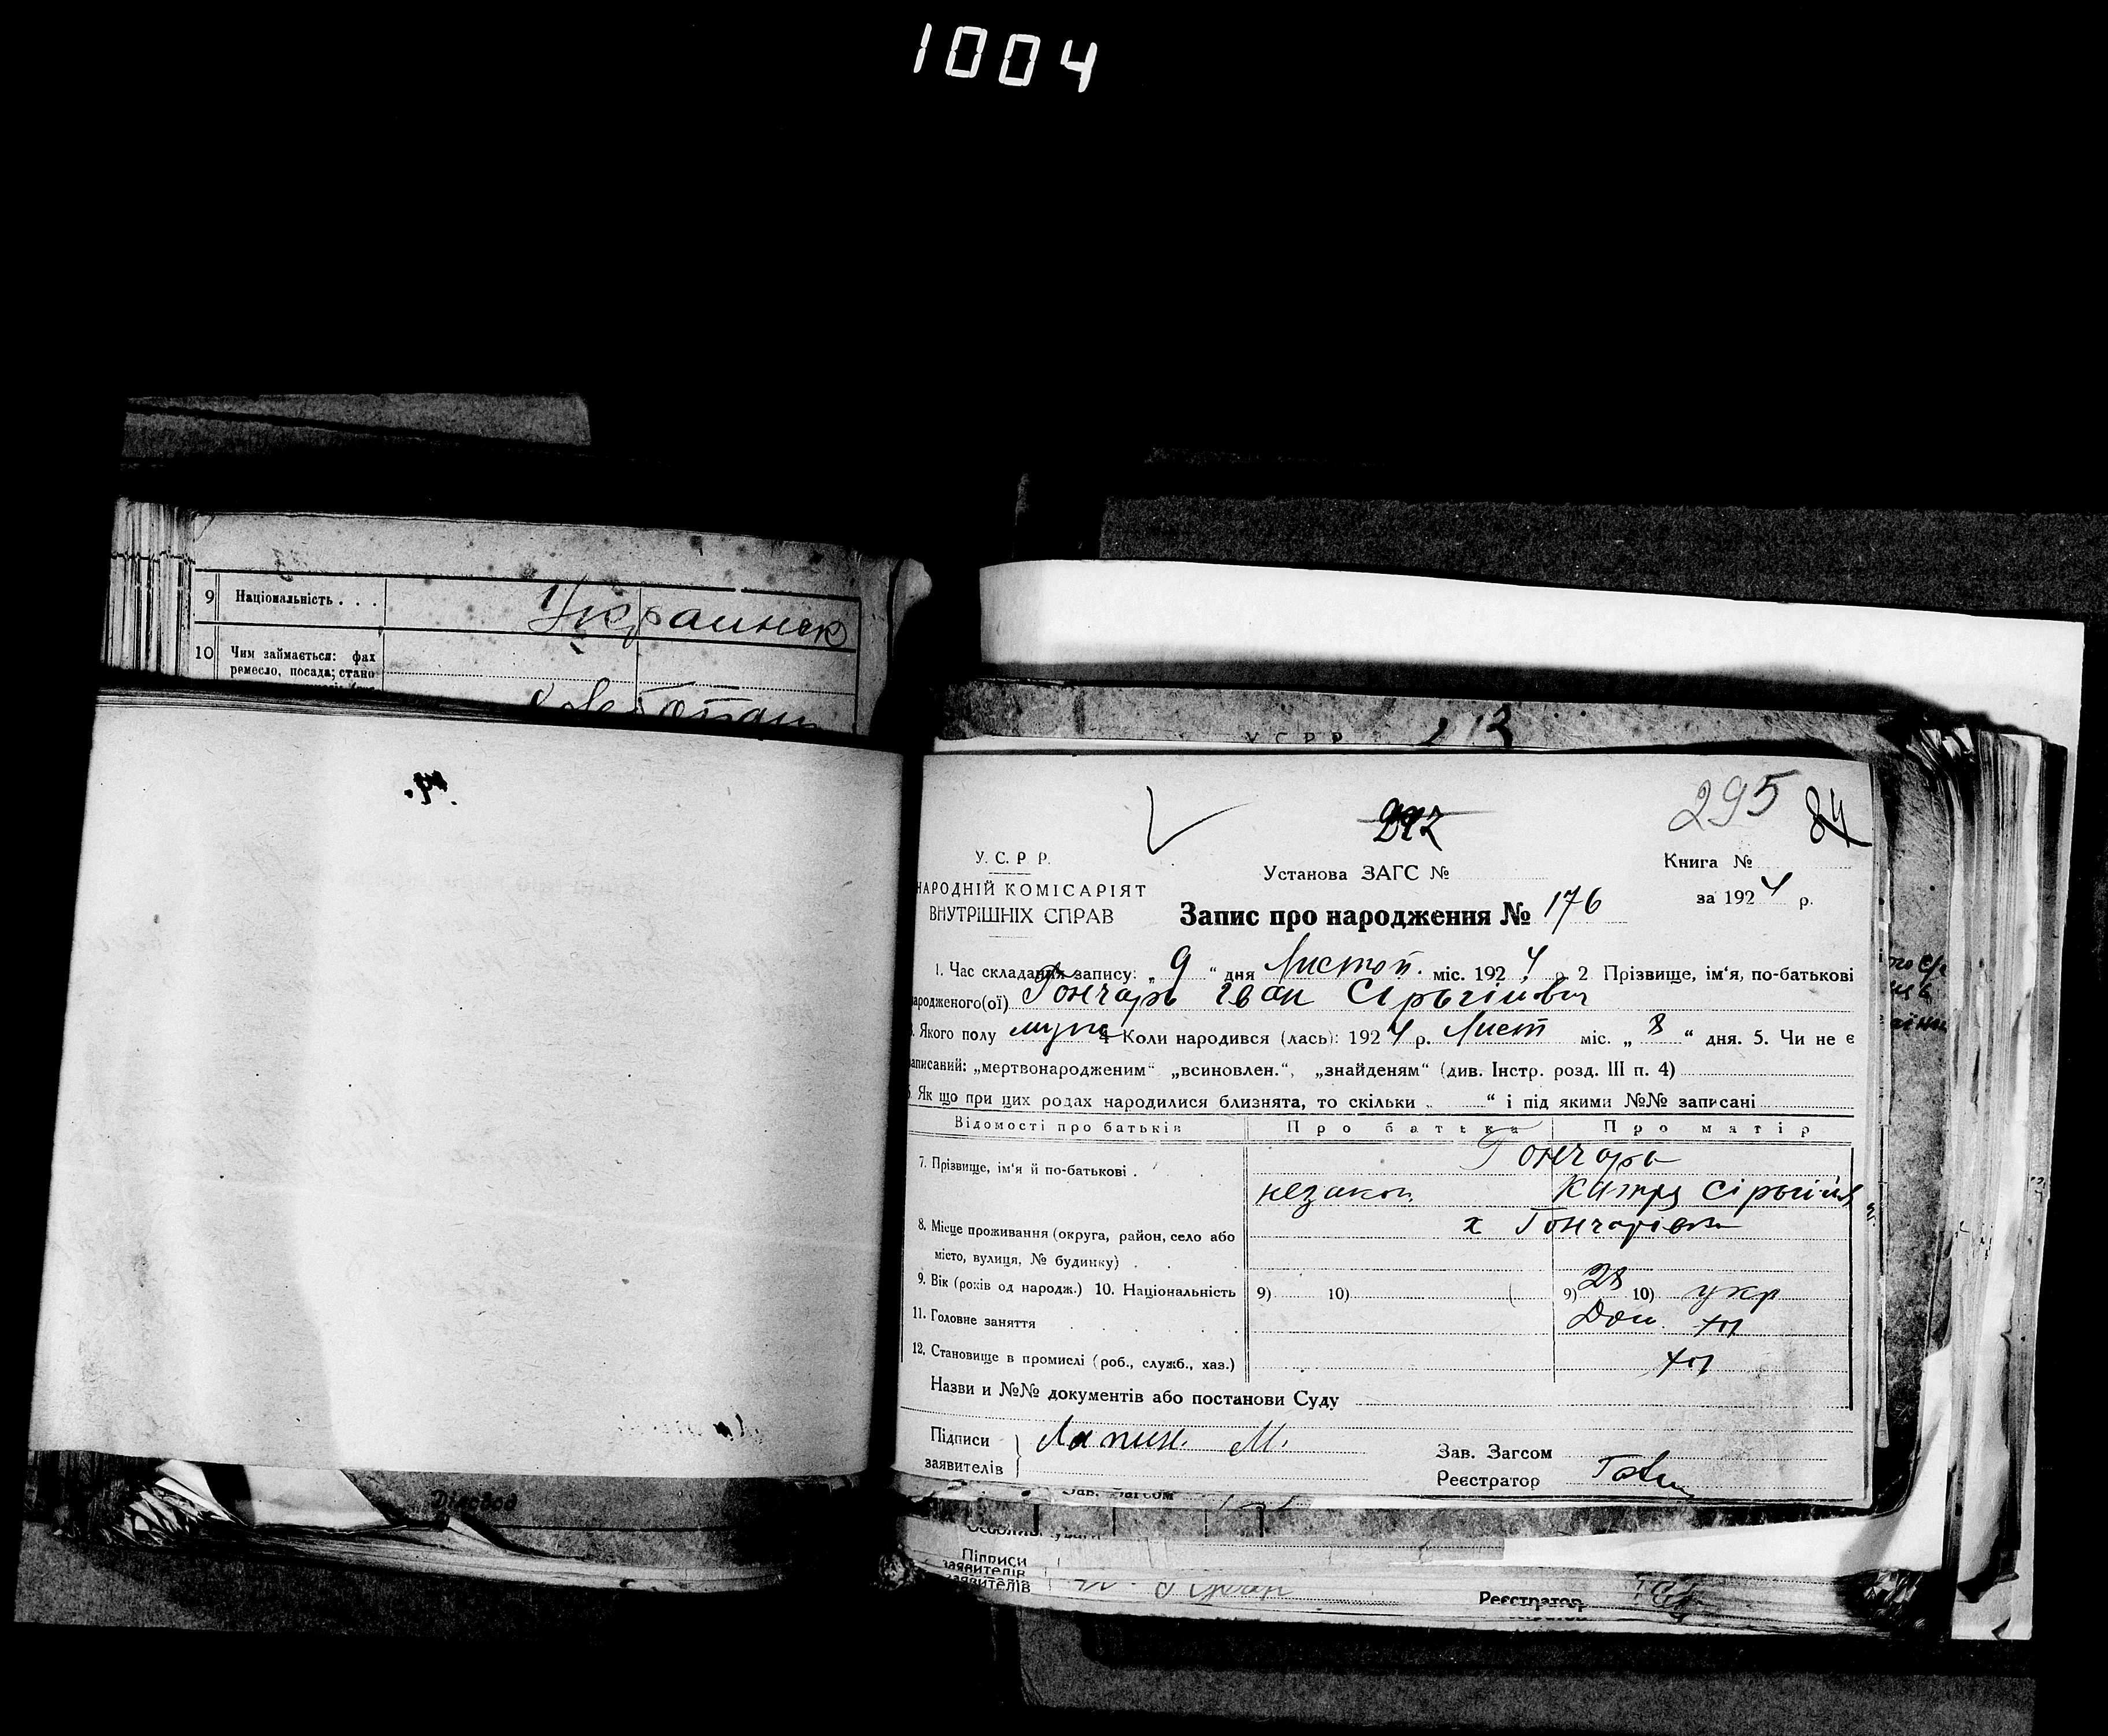 1004
9 Національність . . . Украинск
10 Чим займається: фах
ремесло, посада; стано
У С Р Р 213
295 84
У. С. Р Р.
Установа ЗАГС №
Книга №
НАРОДНІЙ КОМІСАРІЯТ
ВНУТРІШНІХ СПРАВ
за 1924 р.
Запис про народження № 176
1. Час складання запису: „ 9 “ дня Листоп. міс. 1924 р. 2 Прізвище, ім‘я, по-батькові
ародженого(ої) Гончарь Іван
3. Якого полу муж 4 Коли народився (лась): 1924 р. Лист міс. „ 8 “ дня. 5. Чи не є
аписаний: „мертвонародженим“ „всиновлен.“, „знайденям“ (див. Інстр. розд. III п. 4)
6. Як що при цих родах народилися близнята, то скільки „ “ і під якими №№ записані
Відомості про батьків Про батька Про матір
7. Прізвище, ім‘я й по-батькові . Гончарь
незакон. Катря
8. Місце проживання (округа, район, село або х Гончарівка
місто, вулиця, № будинку) .
9. Вік (років од народж.) 10. Національність 9) 10) 9) 28 10) укр
11. Головне заняття Дом.
12. Становище в промислі (роб., служб., хаз.)
Назви и №№ документів або постанови Суду
Підписи М.
заявителів
Зав. Загсом
Реєстратор
Діловод
Зав. Загсом
Підписи
заявителів
заявителів
Реєстратор